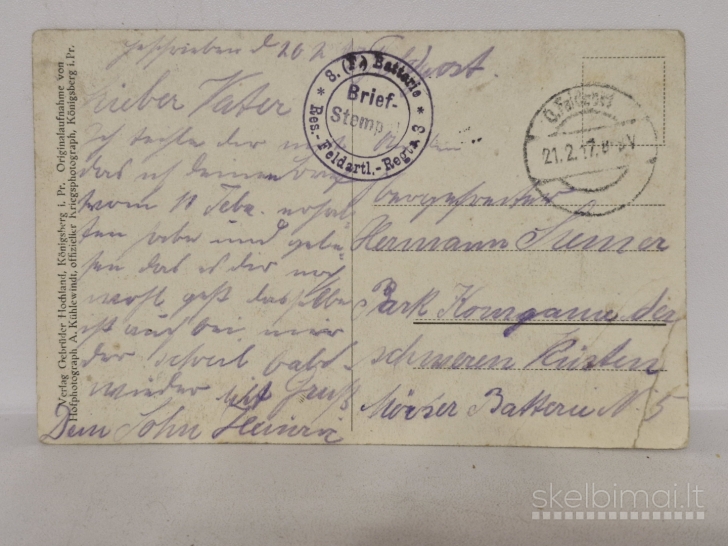 Verlag Gebrüder Hochland, Königsberg i. Pr. Originalaufnahme von
Hofphotograph A. Kühlewindt, offizieller Kriegsphotograph, Königsberg i. Pr.
geschrieben d 20 2
Feldpost.
Lieber Vater
Ich teile dir mit
das ich deinen Brief
vom 11 Febr. erhal-
ten habe und gele-
sen das es dir noch
wohl geht dasselbe
ist auch bei mir
der schreib bald
wieder mit Gruß
Dein Sohn Heinri
8. (F.) Batterie
Brief-
Stemp
* Res.-Feldartl.-Regt. 3 *
D. Feldpost
21. 2. 17. V
Hermann
Park Kompanie der
schweren Küsten
Mörser Batterie N. 5
skelbimai.lt